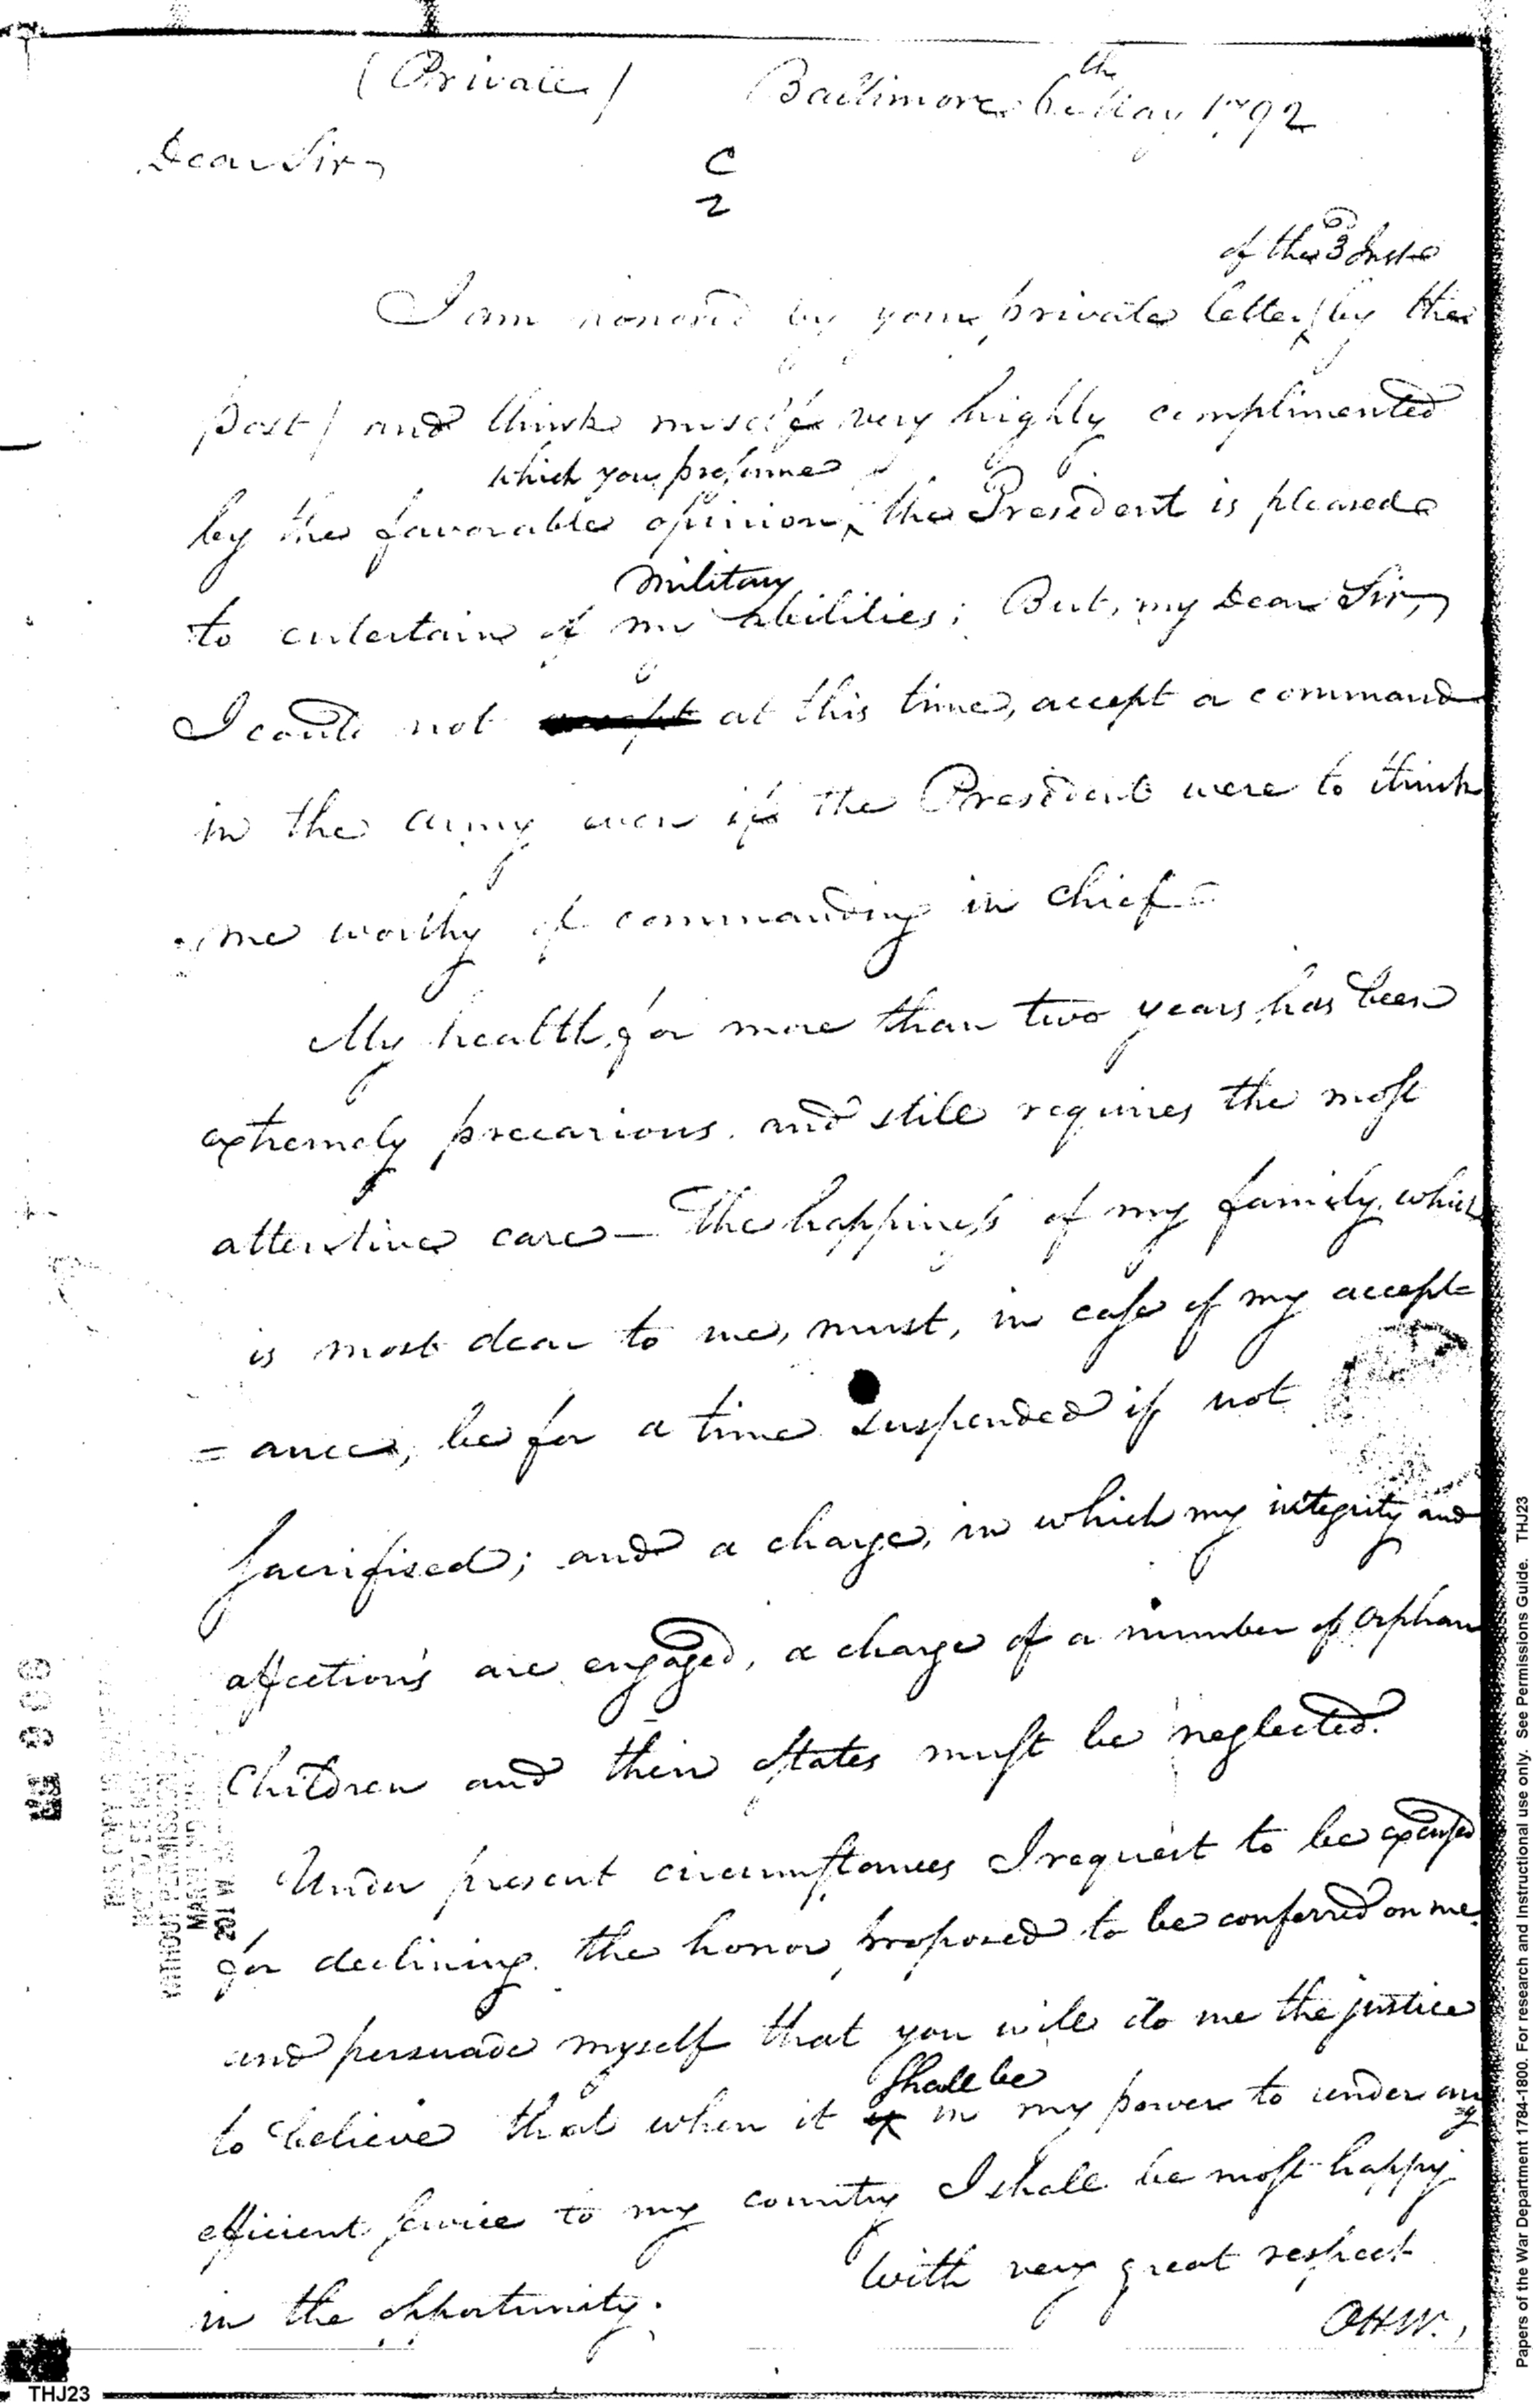 (Private) Baltimore 6th May 1792
Dear Sir,
C
2
of the 3 Inst
I am honored by your private letter (by the
post) and think myself very highly complimented
which you presume
by the favorable opinion, the President is pleased
military
to entertain of my abilities; But, my Dear Sir,
I could not accept at this time, accept a command
in the army even if the President were to think
me worthy of commanding in chief
My health, for more than two years, has been
extremely precarious and still requires the most
attentive care — The happiness of my family, which
is most dear to me, must, in case of my accept
= ance, be for a time suspended if not
sacrifised; and a charge, in which my integrity and
affections are engaged, a charge of a number of orphan
Children and their Estates must be neglected.
Under present circumstances I request to be excused
for declining the honor proposed to be conferred on me
and persuade myself that you will do me the justice
shall be
to believe that when it is in my power to render any
efficient service to my country I shall be most happy
in the opportunity. With very great respect
OHW.
906
THIS COPY
NOT TO BE
WITHOUT PERMISSION
201 W.
THJ23
Papers of the War Department 1784-1800. For research and Instructional use only. See Permissions Guide. THJ23